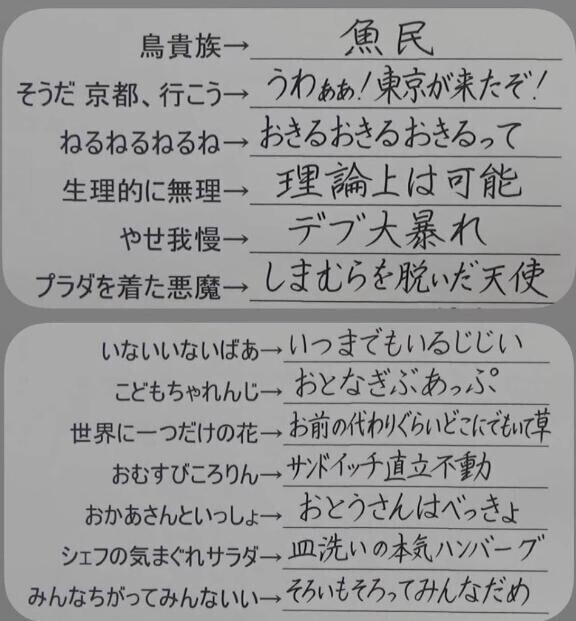 鳥貴族→ 魚民
そうだ 京都、行こう→ うわぁぁ!東京が来たぞ!
ねるねるねるね→ おきるおきるおきるって
生理的に無理→ 理論上は可能
やせ我慢→ デブ大暴れ
プラダを着た悪魔→ しまむらを脱いだ天使
いないいないばあ→ いつまでもいるじじい
こどもちゃれんじ→ おとなぎぶあっぷ
世界に一つだけの花→ お前の代わりぐらいどこにでもいて草
おむすびころりん→ サンドイッチ直立不動
おかあさんといっしょ→ おとうさんはべっきょ
シェフの気まぐれサラダ→ 皿洗いの本気ハンバーグ
みんなちがってみんないい→ そろいもそろってみんなだめ